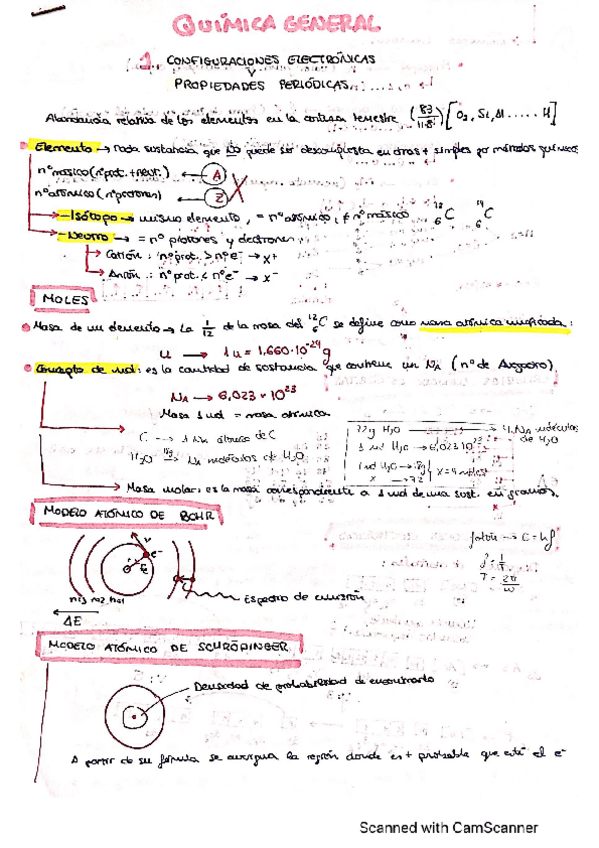 QUÍMICA GENERAL
1. CONFIGURACIONES ELECTRÓNICAS
Y
PROPIEDADES PERIÓDICAS
Abundancia relativa de los elementos en la corteza terrestre (83/118) [O2, Si, Al ..... H]
Elemento → Toda sustancia que NO puede ser descompuesta en otras + simples por métodos químicos
nº másico (nºprot. + neut.) ← A
nº atómico (nº protones) ← Z X
- Isótopo → mismo elemento, = nº atómico, ≠ nº másico 12 6 C 14 6 C
- Neutro → = nº protones y electrones
Catión : nºprot. > nºe⁻ → x+
Anión : nºprot. < nºe⁻ → x⁻
MOLES
Masa de un elemento → La 1/12 de la masa del 12 6 C se define como masa atómica unificada:
u → 1u = 1,660·10⁻²⁴ g
Concepto de mol: es la cantidad de sustancia que contiene un NA (nº de Avogadro).
NA → 6,023 · 10²³
Masa 1 mol = masa atómica
C → 1 NA átomos de C
H2O → NA moléculas de H2O
72g H2O → 4 NA moléculas de H2O
1 mol H2O → 6,023·10²³
1 mol H2O → 18g
x → 72 } x = 4 moles
Masa molar: es la masa correspondiente a 1 mol de una sust. en gramos.
MODELO ATÓMICO DE BOHR
fotón → E = hf
f = 1/T
T = 2π/ω
v e⁻
r Fe
n=3 n=2 n=1
Espectro de emisión
ΔE
MODELO ATÓMICO DE SCHRÖDINGER
Densidad de probabilidad de encontrarlo
A partir de su fórmula se averigua la región donde es + probable que esté el e⁻
Scanned with CamScanner